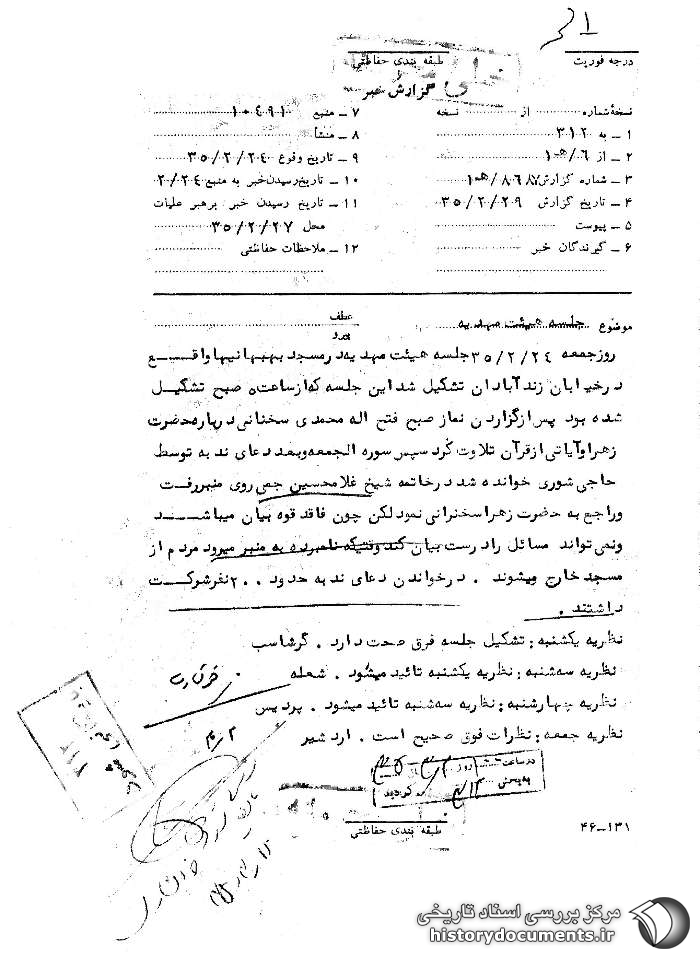 درجه فوریت
طبقه بندی حفاظتی
خیلی
گزارش خبر
نسخهٔ شماره از نسخه
۱ ــ به ۳۱۲
۲ ــ از ۶/ ه‍ ۱
۳ ــ شماره گزارش
۴ ــ تاریخ گزارش ۳۵/۲/۲۹
۵ ــ پیوست
۶ ــ گیرندگان خبر
۷ ــ منبع ۱۰۴۹۱
۸ ــ منشأ
۹ ــ تاریخ وقوع ۳۵/۲/۲۴
۱۰ ــ تاریخ رسیدن خبر به منبع ۲/۲۴
۱۱ ــ تاریخ رسیدن خبر برهبر عملیات
محل ۳۵/۲/۲۷
۱۲ ــ ملاحظات حفاظتی
موضوع جلسه هیئت مهدیه
عطف
پیرو
روز جمعه ۳۵/۲/۲۴ جلسه هیئت مهدیه در مسجد بهبهانیها واقع
در خیابان زند آبادان تشکیل شد این جلسه که از ساعت ۵ صبح تشکیل
شده بود پس از گزاردن نماز صبح فتح اله محمدی سخنانی درباره حضرت
زهرا و آیاتی از قرآن تلاوت کرد سپس سوره الجمعه و بعد دعای ندبه توسط
حاجی شوری خوانده شد در خاتمه شیخ غلامحسین جمی روی منبر رفت
و راجع به حضرت زهرا سخنرانی نمود لکن چون فاقد قوه بیان میباشد
و نمی تواند مسائل را درست بیان کند وقتیکه نامبرده به منبر میرود مردم از
مسجد خارج میشوند . در خواندن دعای ندبه حدود ۲۰۰ نفر شرکت
داشتند .
نظریه یکشنبه : تشکیل جلسه فوق صحت دارد . گرشاسب
نظریه سه‌شنبه : نظریه یکشنبه تائید میشود . شعله
نظریه چهارشنبه : نظریه سه‌شنبه تائید میشود . پردیس
نظریه جمعه : نظرات فوق صحیح است . اردشیر
در ساعت روز
به بخش گردید
طبقه بندی حفاظتی
۴۶-۱۳۱
مرکز بررسی اسناد تاریخی
historydocuments.ir